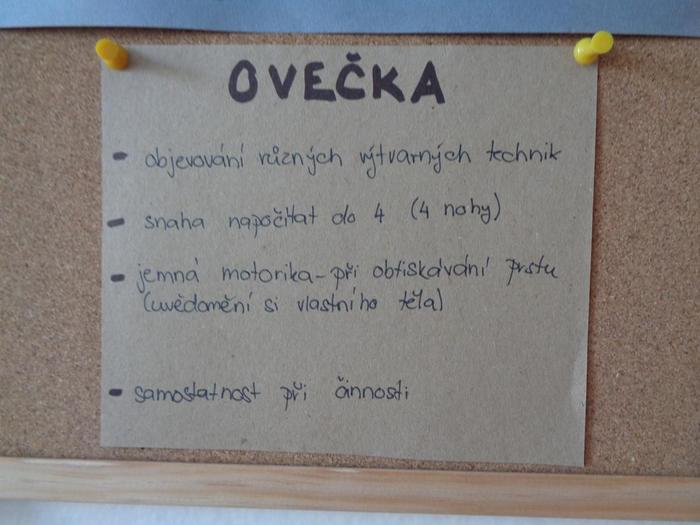 OVEČKA
- objevování různých výtvarných technik
- snaha napočítat do 4 (4 nohy)
- jemná motorika - při obtiskávání prstu
(uvědomění si vlastního těla)
- samostatnost při činnosti